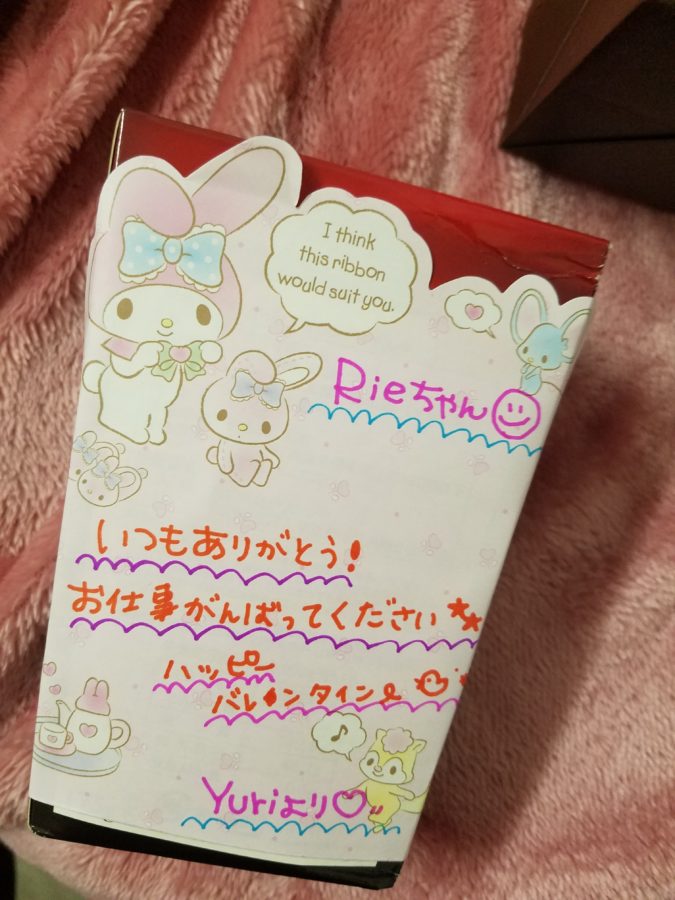 I think
this ribbon
would suit you.
Rieちゃん
いつもありがとう!
お仕事がんばってください**
ハッピー
バレンタイン
Yuriより♡